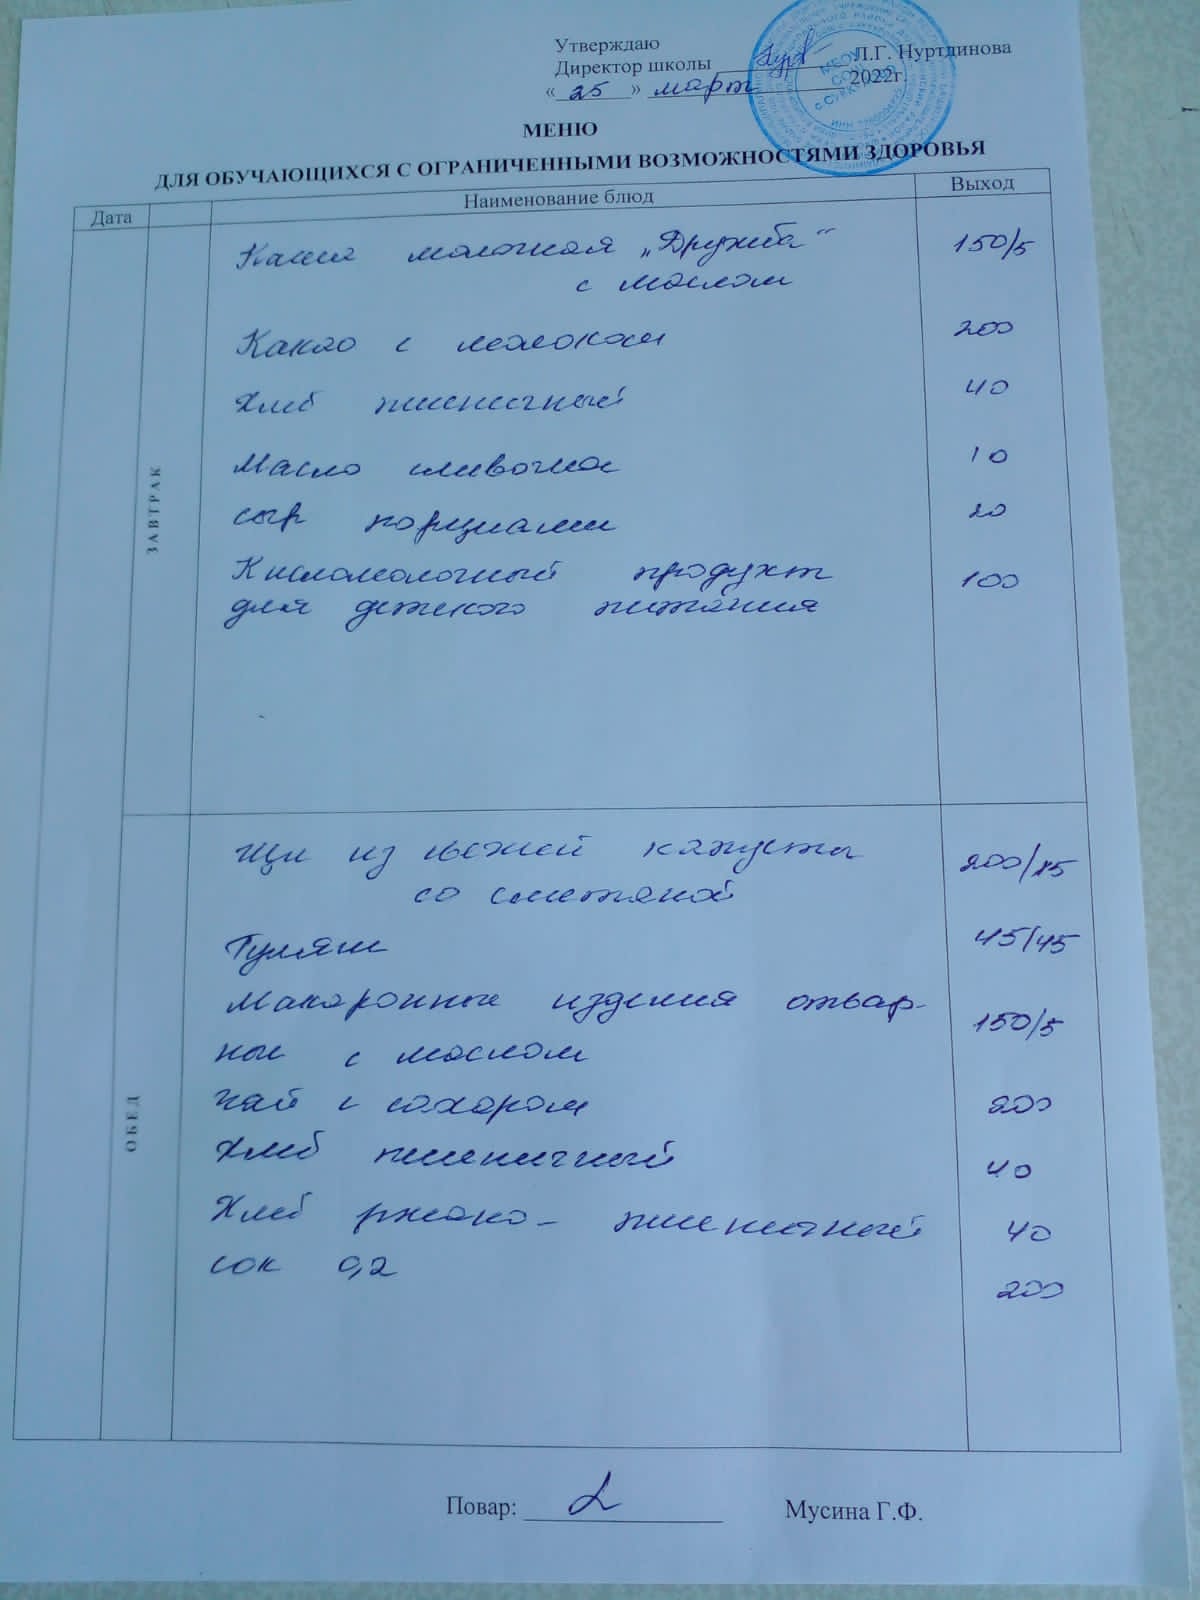 Утверждаю
Директор школы Л.Г. Нуртдинова
« 25 » март 2022г.
МЕНЮ
ДЛЯ ОБУЧАЮЩИХСЯ С ОГРАНИЧЕННЫМИ ВОЗМОЖНОСТЯМИ ЗДОРОВЬЯ
Дата Наименование блюд Выход
ЗАВТРАК
Каша молочная „Дружба“ 150/5
с маслом
Какао с молоком 200
Хлеб пшеничный 40
Масло сливочное 10
сыр порциями 20
Кисломолочный продукт 100
для детского питания
ОБЕД
Щи из свежей капусты 200/15
со сметаной
Гуляш 45/45
Макаронные изделия отвар-
ные с маслом 150/5
Чай с сахаром 200
Хлеб пшеничный 40
Хлеб ржано- пшеничный 40
сок 0,2 200
Повар: Мусина Г.Ф.